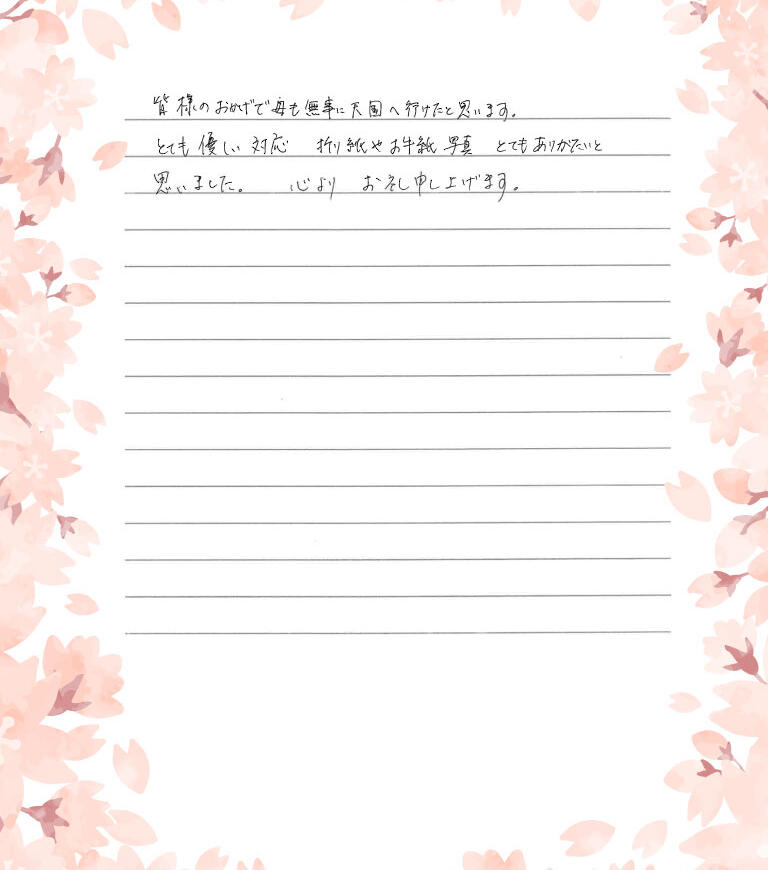 皆様のおかげで母も無事に天国へ行けたと思います。
とても優しい対応 折り紙やお手紙 写真 とてもありがたいと
思いました。 心より お礼申し上げます。